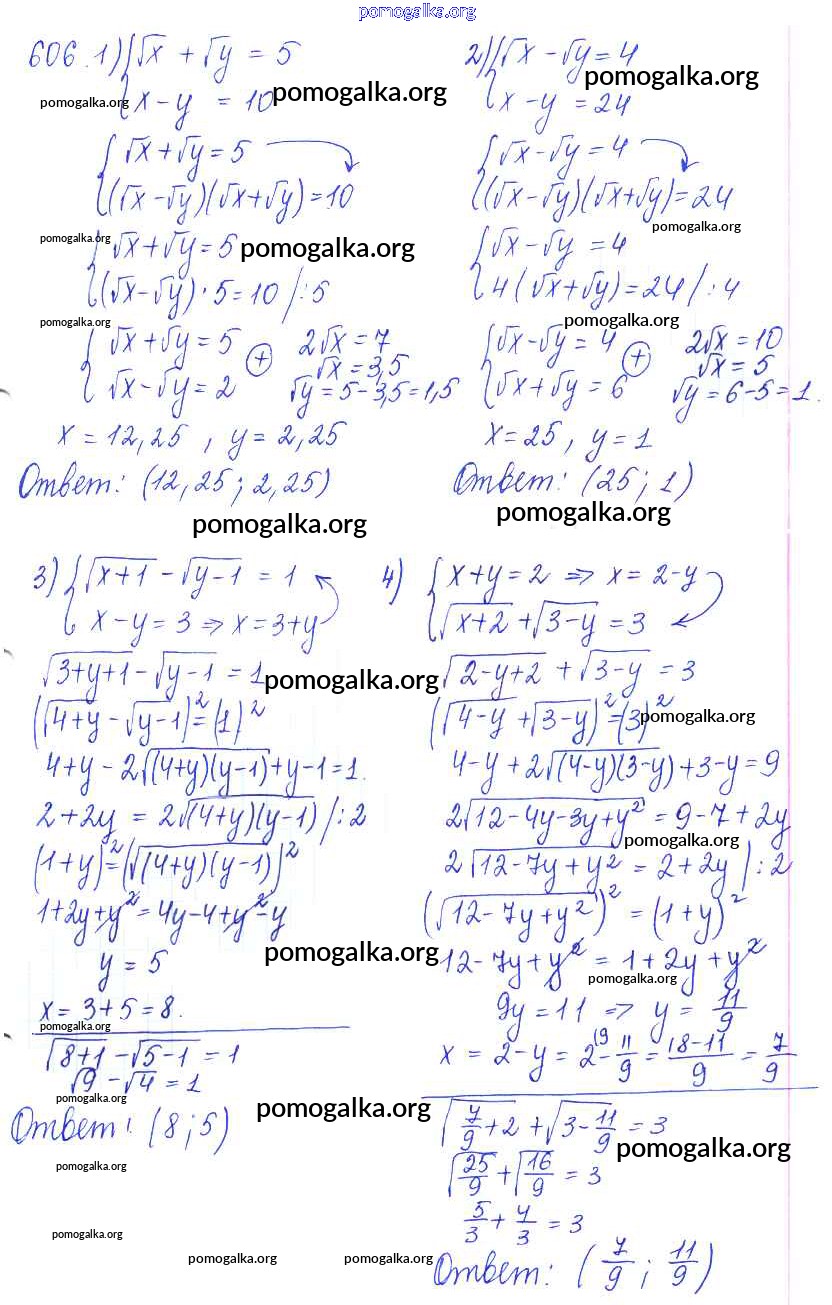 pomogalka.org
606. 1) { √x + √y = 5
x - y = 10
pomogalka.org pomogalka.org
{ √x + √y = 5
(√x - √y)(√x + √y) = 10
pomogalka.org
{ √x + √y = 5 pomogalka.org
(√x - √y) · 5 = 10 /:5
pomogalka.org
{ √x + √y = 5 (+) 2√x = 7
√x = 3,5
√x - √y = 2 √y = 5 - 3,5 = 1,5
x = 12,25 , y = 2,25
Ответ: (12,25 ; 2,25)
pomogalka.org
2) { √x - √y = 4
pomogalka.org
x - y = 24
{ √x - √y = 4
(√x - √y)(√x + √y) = 24
pomogalka.org
{ √x - √y = 4
4(√x + √y) = 24 /:4
pomogalka.org
{ √x - √y = 4 (+) 2√x = 10
√x = 5
√x + √y = 6 √y = 6 - 5 = 1.
x = 25 , y = 1
Ответ: (25 ; 1)
pomogalka.org
3) { √(x+1) - √(y-1) = 1
x - y = 3 ⇒ x = 3+y
√(3+y+1) - √(y-1) = 1
pomogalka.org
(√(4+y) - √(y-1))² = (1)²
4+y - 2√((4+y)(y-1)) + y-1 = 1.
2+2y = 2√((4+y)(y-1)) /:2
(1+y)² = (√((4+y)(y-1)))²
1+2y+y² = 4y-4+y²-y
y = 5 pomogalka.org
x = 3+5 = 8.
pomogalka.org
√(8+1) - √(5-1) = 1
√9 - √4 = 1
pomogalka.org
Ответ: (8 ; 5)
pomogalka.org
pomogalka.org
pomogalka.org
pomogalka.org
4) { x+y = 2 ⇒ x = 2-y
√(x+2) + √(3-y) = 3
√(2-y+2) + √(3-y) = 3
(√(4-y) + √(3-y))² = (3)²
pomogalka.org
4-y + 2√((4-y)(3-y)) + 3-y = 9
2√(12-4y-3y+y²) = 9-7+2y
pomogalka.org
2√(12-7y+y²) = 2+2y /:2
(√(12-7y+y²))² = (1+y)²
12-7y+y² = 1+2y+y²
pomogalka.org
9y = 11 ⇒ y = 11/9
x = 2-y = 2 - 11/9 = (18-11)/9 = 7/9
√(7/9+2) + √(3-11/9) = 3
pomogalka.org
√(25/9) + √(16/9) = 3
5/3 + 4/3 = 3
pomogalka.org
Ответ: (7/9 ; 11/9)